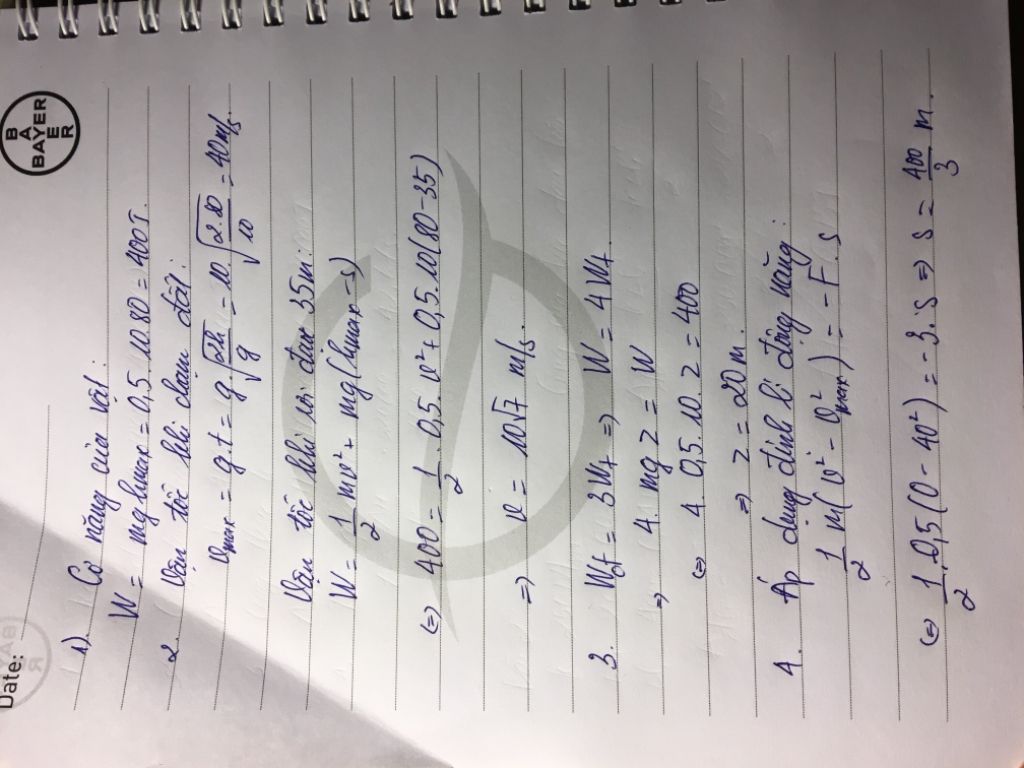 Date:
BAYER
BAYER
1). Cơ năng của vật:
W = mghmax = 0,5.10.80 = 400J.
2. Vận tốc khi chạm đất:
vmax = g.t = g√(2h/g) = 10√(2.80/10) = 40m/s.
Vận tốc khi rơi được 35m:
W = 1/2 mv² + mg(hmax - s)
(=) 400 = 1/2 . 0,5. v² + 0,5.10(80-35)
=) v = 10√7 m/s.
3. Wđ = 3Wt =) W = 4Wt.
=) 4.mgz = W
(=) 4.0,5.10.z = 400
=) z = 20m.
4. Áp dụng định lí động năng:
1/2 m(v² - v²max) = -F.s
(=) 1/2.0,5(0 - 40²) = -3.s =) s = 400/3 m.